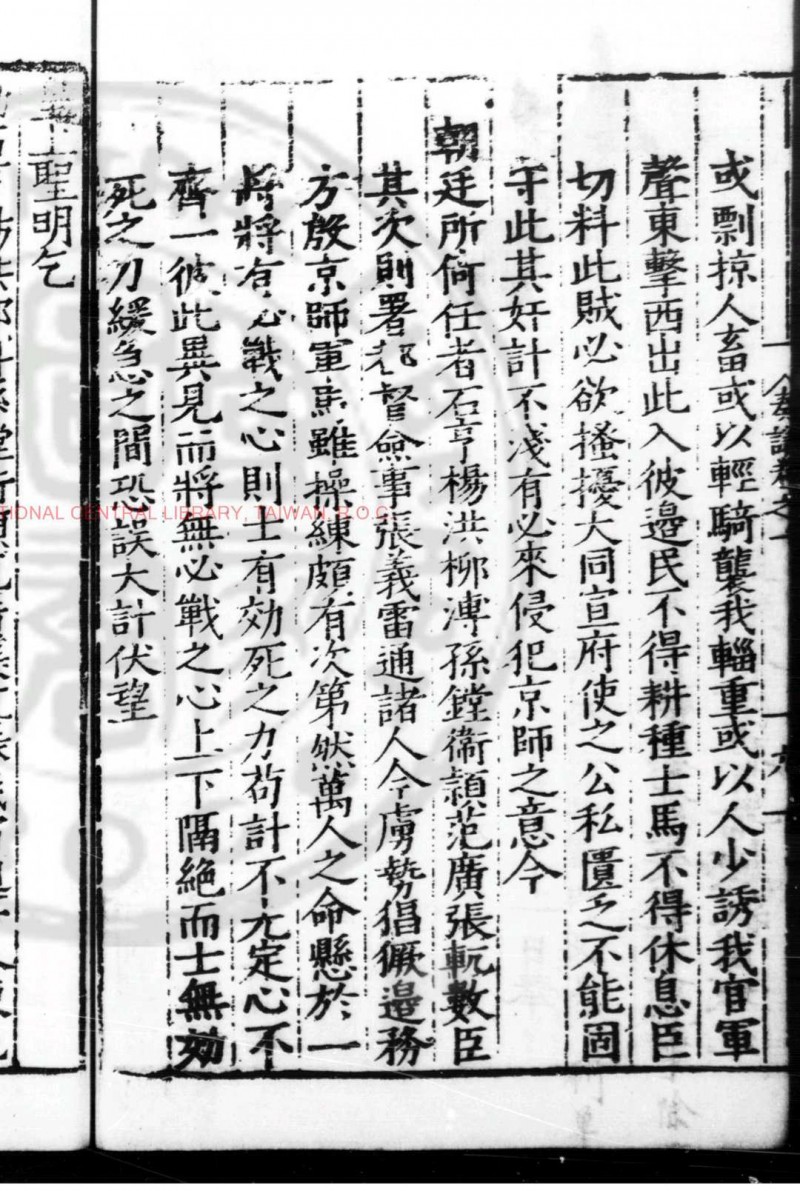 或剽掠人畜或以輕騎襲我輜重或以人少誘我官軍
聲東擊西出此入彼邉民不得耕種士馬不得休息臣
切料此賊必欲搔擾大同宣府使之公私匱乏不能固
守此其奸計不淺有必來侵犯京師之意今
朝廷所倚任者石亨楊洪栁溥孫鏜衛潁范廣張軏數臣
其次則署都督僉事張義雷通諸人今虜勢猖獗邉務
方殷京師軍馬雖操練頗有次第然萬人之命懸於一
將將有必戰之心則士有効死之力茍計不先定心不
齊一彼此異見而將無必戰之心上下隔絶而士無効
死之力緩急之間恐誤大計伏望
聖明乞
NATIONAL CENTRAL LIBRARY, TAIWAN, R.O.C